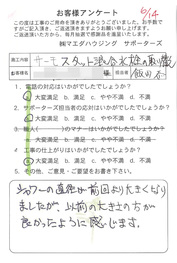 お客様アンケート
6/14
この度は工事のご用命を頂きありがとうございました。お手数で
すがご記入頂き、ご返送頂ければ幸いです。ご意見ご要望をご
返送頂いた方から、毎月抽選で感謝品を進呈いたします。
㈱マエダハウジング サポーターズ
工事内容
サーモスタット混合水栓の取替
お客様名
飯田
1. 電話の対応はいかがでしたでしょうか?
大変満足 B. 満足 C. やや不満 D. 不満
2. サポーターズ担当者の応対はいかがでしたでしょうか?
大変満足 B. 満足 C. やや不満 D. 不満
3. 職人( )のマナーはいかがでしたでしょうか?
大変満足 B. 満足 C. やや不満 D. 不満
4. 工事の仕上がりはいかがでしたでしょうか?
大変満足 B. 満足 C. やや不満 D. 不満
5. その他、ご意見・ご要望をお書き下さい。
シャワーの直径が前回より大きくなり
ましたが、以前の大きさの方が
良かったように感じます。